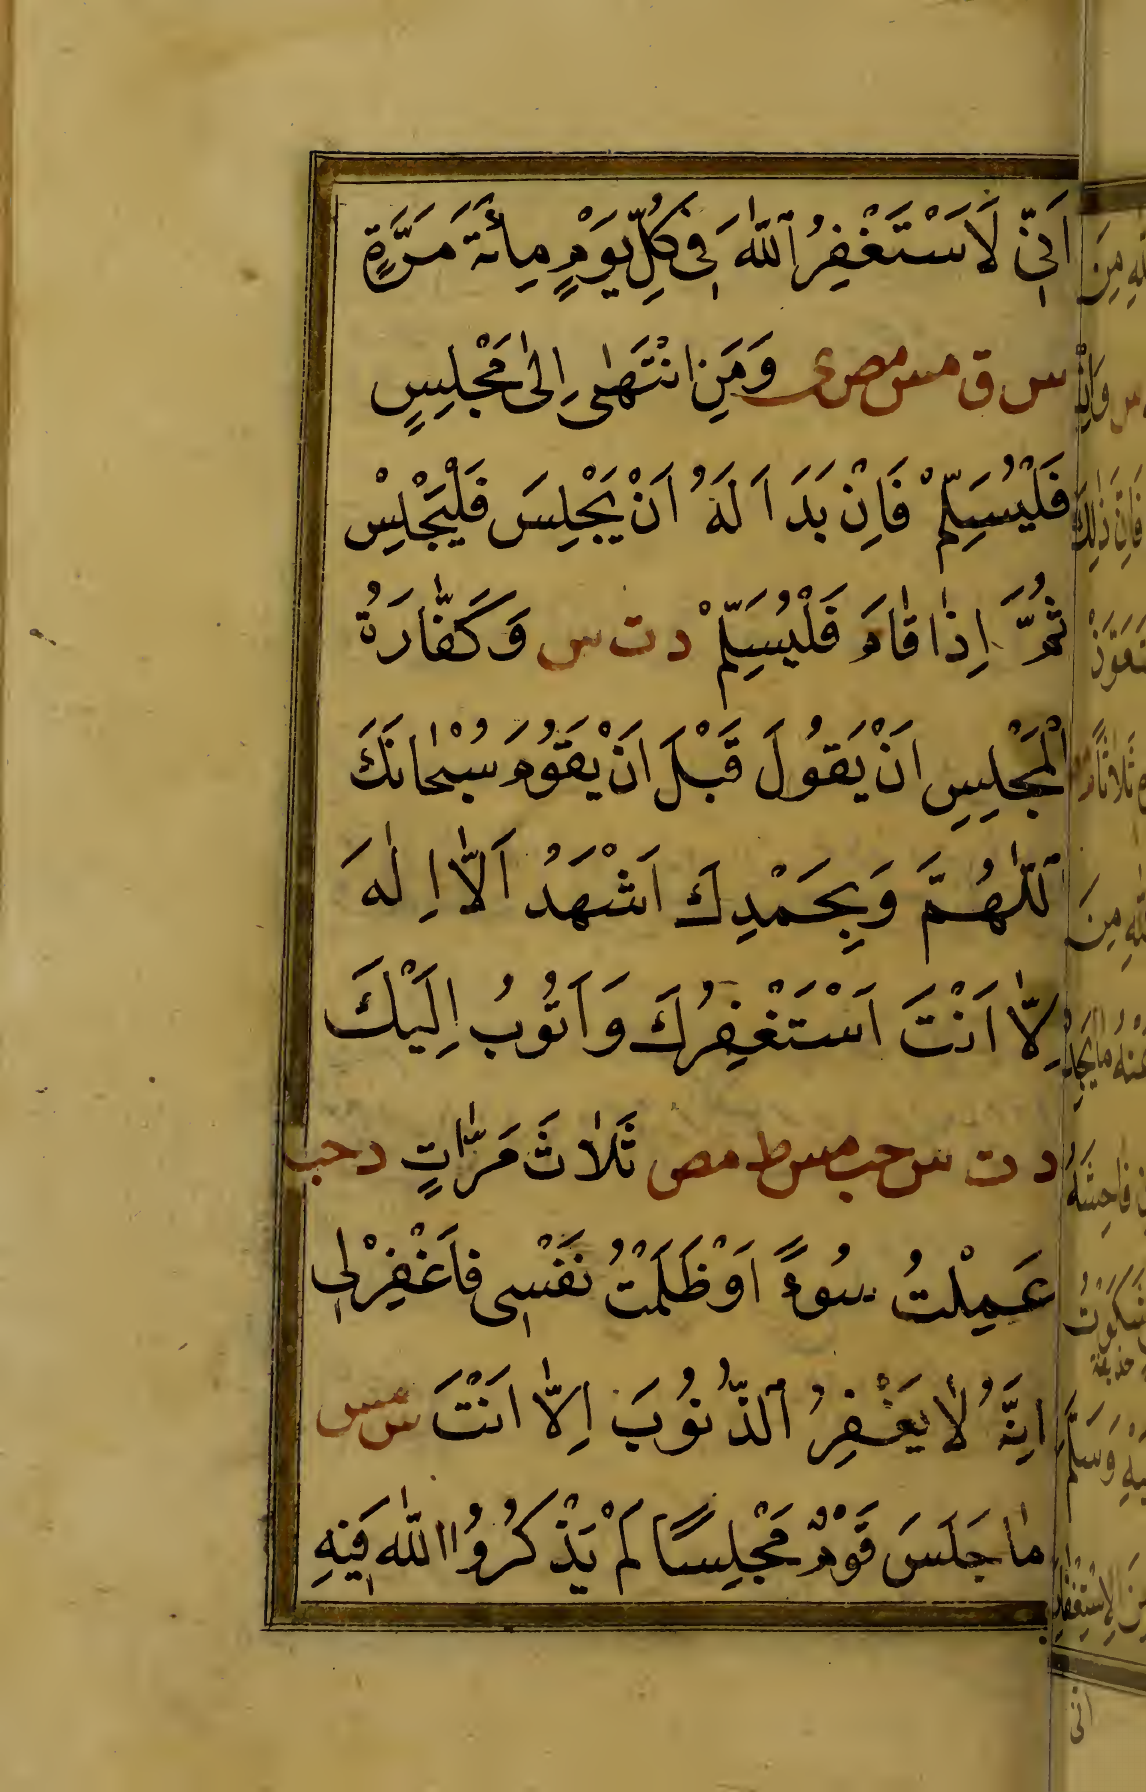 اَنِّي لَاَسْتَغْفِرُ ٱللّٰهَ فِي كُلِّ يَوْمٍ مِائَةَ مَرَّةٍ
س ق مس مصى وَمَنِ انْتَهٰى اِلٰى مَجْلِسٍ
فَلْيُسَلِّمْ فَاِنْ بَدَا لَهُ اَنْ يَجْلِسَ فَلْيَجْلِسْ
ثُمَّ اِذٰا قٰامَ فَلْيُسَلِّمْ د ت س وَكَفّٰارَةُ
الْمَجْلِسِ اَنْ يَقُولَ قَبْلَ اَنْ يَقُومَ سُبْحٰانَكَ
ٱللّٰهُمَّ وَبِحَمْدِكَ اَشْهَدُ اَلّٰا اِلٰهَ
اِلّٰا اَنْتَ اَسْتَغْفِرُكَ وَاَتُوبُ اِلَيْكَ
د ت س حب مس ط مص ثَلٰاثَ مَرّٰاتٍ د حب
عَمِلْتُ سُوءً اَوْ ظَلَمْتُ نَفْسِي فَاغْفِرْ لِي
اِنَّهُ لٰا يَغْفِرُ ٱلذُّنُوبَ اِلّٰا اَنْتَ س مس
مٰا جَلَسَ قَوْمٌ مَجْلِسًا لَمْ يَذْكُرُوا اللّٰهَ فِيهِ